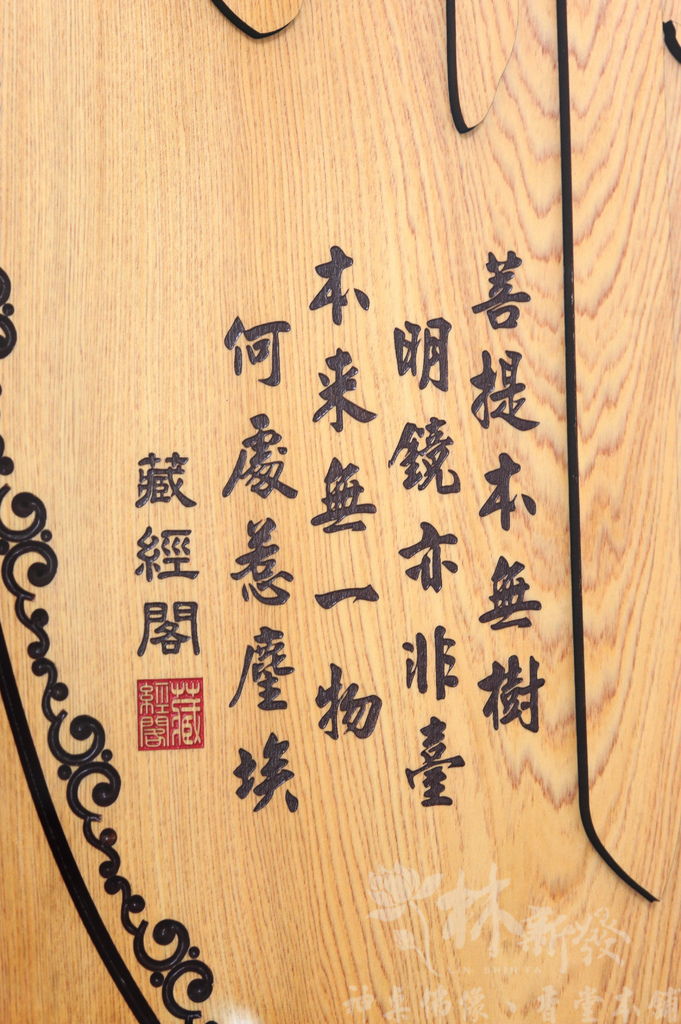 菩提本無樹
明鏡亦非臺
本来無一物
何處惹塵埃
藏經閣
藏經閣
林新發
LIN SHIN FA
神桌佛像、香堂本舖